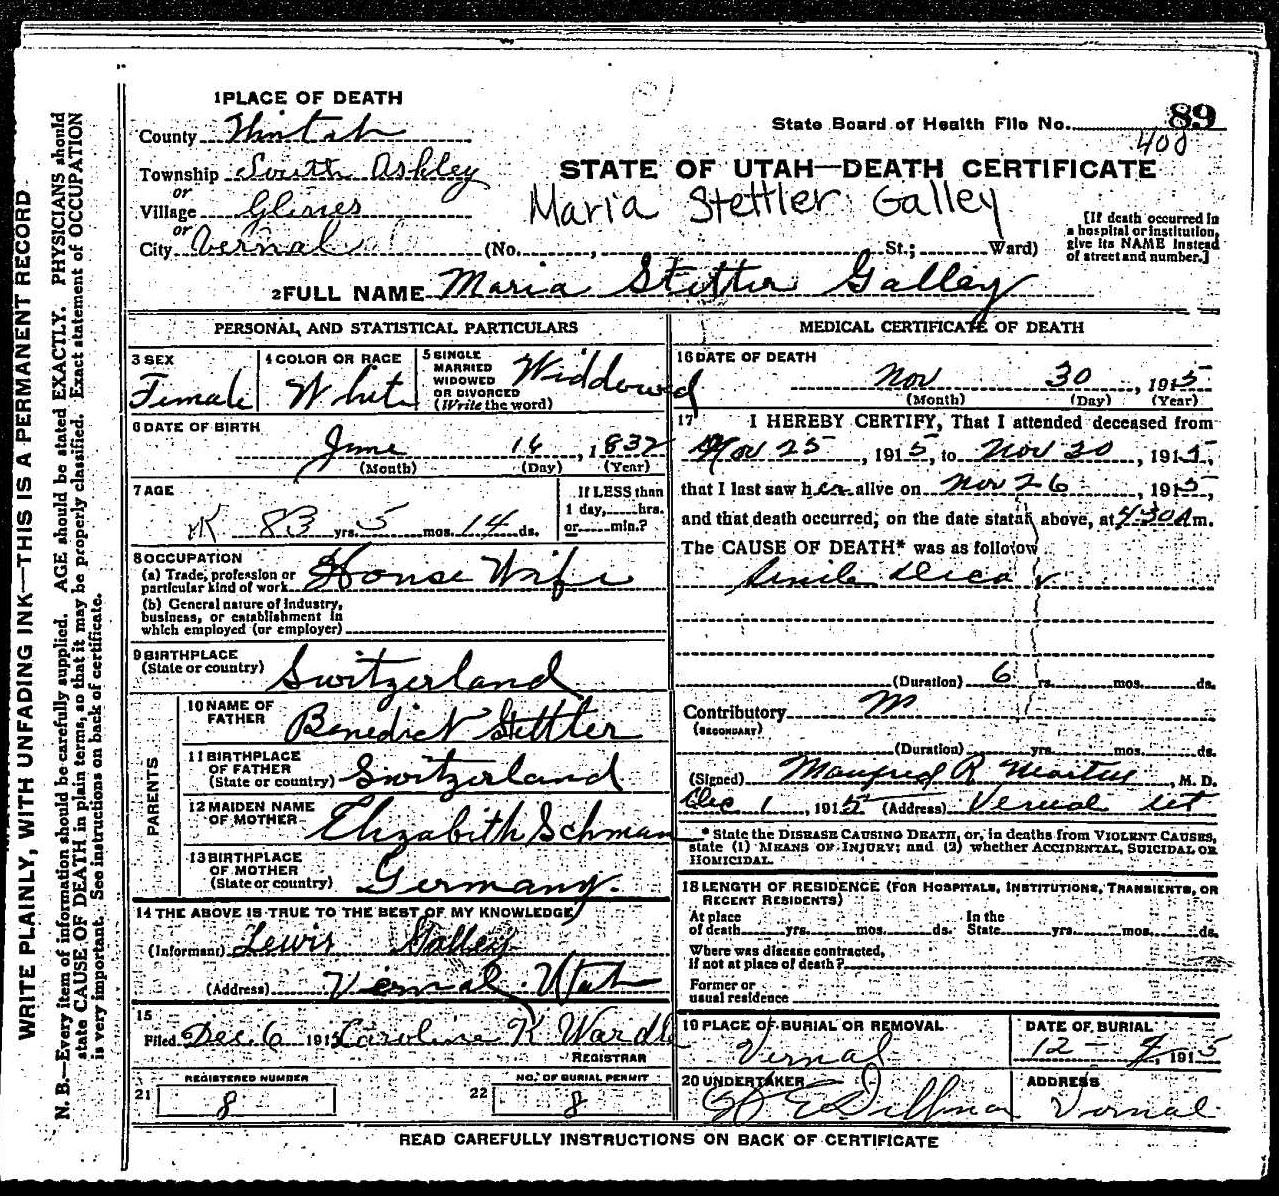 1 PLACE OF DEATH
89
State Board of Health File No.
400
County Uintah
Township South Ashley
or
Village Glines
or
City Vernal (No. , St.; Ward)
STATE OF UTAH—DEATH CERTIFICATE
Maria Stettler Galley
[If death occurred in
a hospital or institution,
give its NAME instead
of street and number.]
2 FULL NAME Maria Stettler Galley
PERSONAL AND STATISTICAL PARTICULARS
3 SEX
Female
4 COLOR OR RACE
White
5 SINGLE
MARRIED
WIDOWED
OR DIVORCED
(Write the word)
Widdowed
6 DATE OF BIRTH
June 16, 1832
(Month) (Day) (Year)
7 AGE
83 yrs. 5 mos. 14 ds.
If LESS than
1 day, hrs.
or min.?
8 OCCUPATION
(a) Trade, profession or
particular kind of work House Wife
(b) General nature of industry,
business, or establishment in
which employed (or employer)
9 BIRTHPLACE
(State or country) Switzerland
PARENTS
10 NAME OF
FATHER Benedict Stettler
11 BIRTHPLACE
OF FATHER
(State or country) Switzerland
12 MAIDEN NAME
OF MOTHER Elizabith Schman
13 BIRTHPLACE
OF MOTHER
(State or country) Germany.
14 THE ABOVE IS TRUE TO THE BEST OF MY KNOWLEDGE
(Informant) Lewis Galley
(Address) Vernal, Utah
15
Filed Dec. 6 1915 Caroline K Wardle
REGISTRAR
21 REGISTERED NUMBER
8
22 NO. OF BURIAL PERMIT
8
MEDICAL CERTIFICATE OF DEATH
16 DATE OF DEATH
Nov 30, 1915
(Month) (Day) (Year)
17 I HEREBY CERTIFY, That I attended deceased from
Nov 25, 1915, to Nov 30, 1915,
that I last saw her alive on Nov 26, 1915,
and that death occurred, on the date stated above, at 4 30 A m.
The CAUSE OF DEATH* was as follow
Senile
(Duration) 6 rs. mos. ds.
Contributory
(SECONDARY)
(Duration) yrs. mos. ds.
(Signed) Manfred R Martin, M. D.
Dec 1, 1915 (Address) Vernal Ut
* State the DISEASE CAUSING DEATH, or, in deaths from VIOLENT CAUSES,
state (1) MEANS OF INJURY; and (2) whether ACCIDENTAL, SUICIDAL OR
HOMICIDAL.
18 LENGTH OF RESIDENCE (FOR HOSPITALS, INSTITUTIONS, TRANSIENTS, OR
RECENT RESIDENTS)
At place
of death yrs. mos. ds.
In the
State yrs. mos. ds.
Where was disease contracted,
if not at place of death?
Former or
usual residence
19 PLACE OF BURIAL OR REMOVAL
Vernal
DATE OF BURIAL
12 - , 1915
20 UNDERTAKER
Dillman
ADDRESS
Vernal
READ CAREFULLY INSTRUCTIONS ON BACK OF CERTIFICATE
WRITE PLAINLY, WITH UNFADING INK—THIS IS A PERMANENT RECORD
N. B.—Every item of information should be carefully supplied. AGE should be stated EXACTLY. PHYSICIANS should
state CAUSE OF DEATH in plain terms, so that it may be properly classified. Exact statement of OCCUPATION
is very important. See instructions on back of certificate.